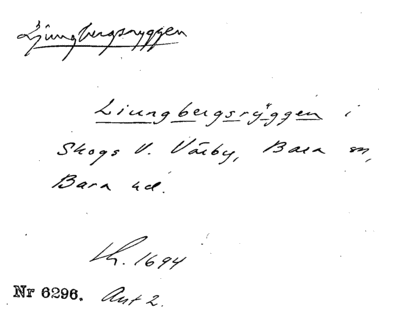 Ljungbergsryggen
Liungbergsrÿggen i
Skogs V. Värby, Bara sn,
Bara hd.
Lh. 1694
Nr 6296. Ant 2.